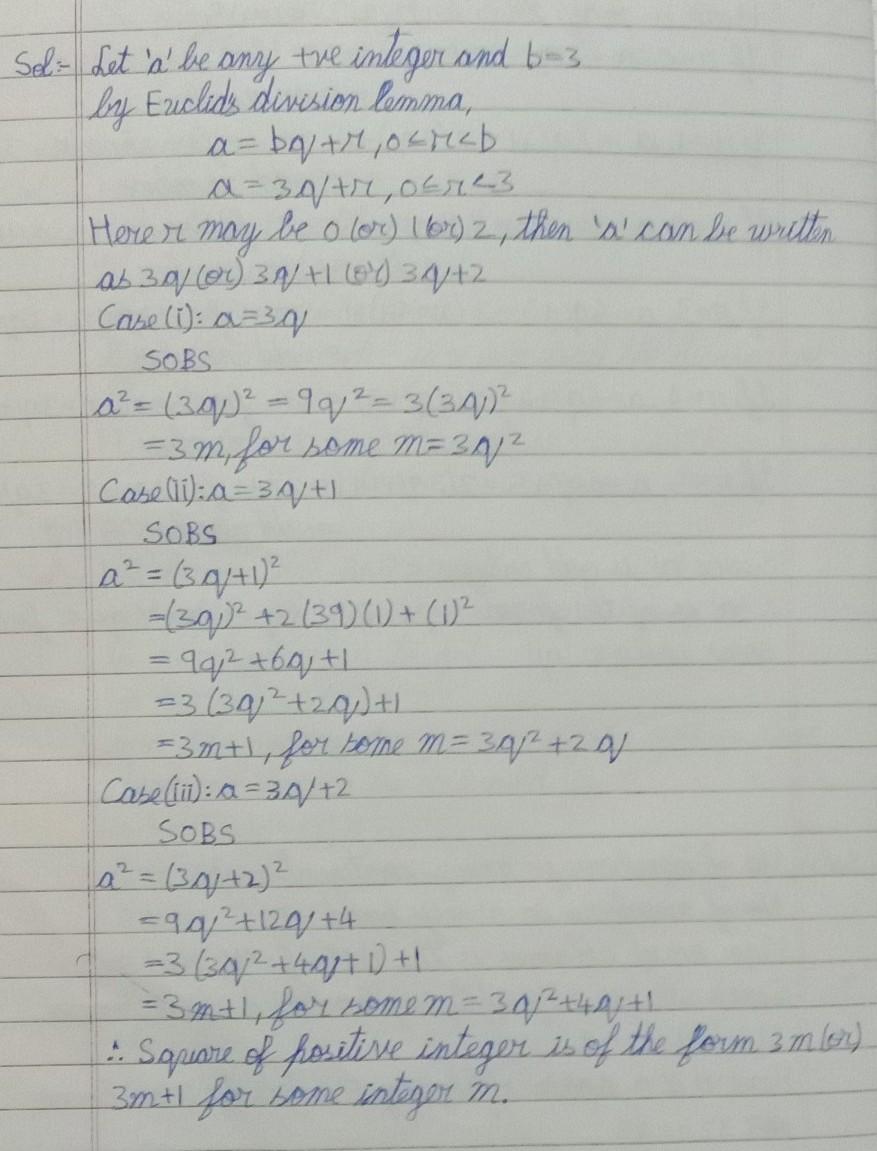 Sol:- Let 'a' be any +ve integer and b=3
by Euclids division lemma,
a = bq+r, 0≤r<b
a = 3q+r, 0≤r<3
Here r may be 0 (or) 1 (or) 2, then 'a' can be written
as 3q (or) 3q+1 (or) 3q+2
Case(i): a=3q
SOBS
a² = (3q)² = 9q² = 3(3q)²
=3m, for some m=3q²
Case(ii): a=3q+1
SOBS
a² = (3q+1)²
=(3q)² +2(3q)(1)+(1)²
= 9q²+6q+1
=3(3q²+2q)+1
=3m+1, for some m=3q²+2q
Case(iii): a=3q+2
SOBS
a² = (3q+2)²
=9q²+12q+4
=3(3q²+4q+1)+1
=3m+1, for some m=3q²+4q+1
∴ Square of positive integer is of the form 3m (or)
3m+1 for some integer m.